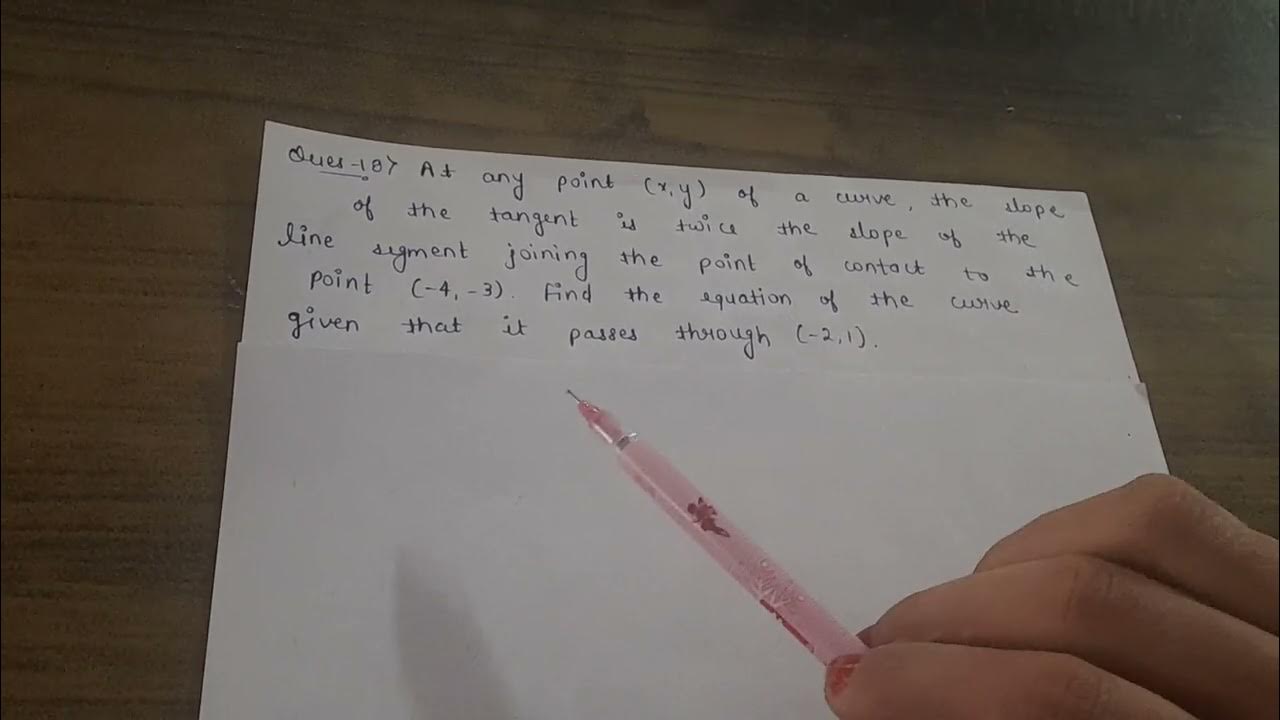 Ques-18> At any point (x,y) of a curve, the slope
of the tangent is twice the slope of the
line segment joining the point of contact to the
point (-4,-3). Find the equation of the curve
given that it passes through (-2,1).